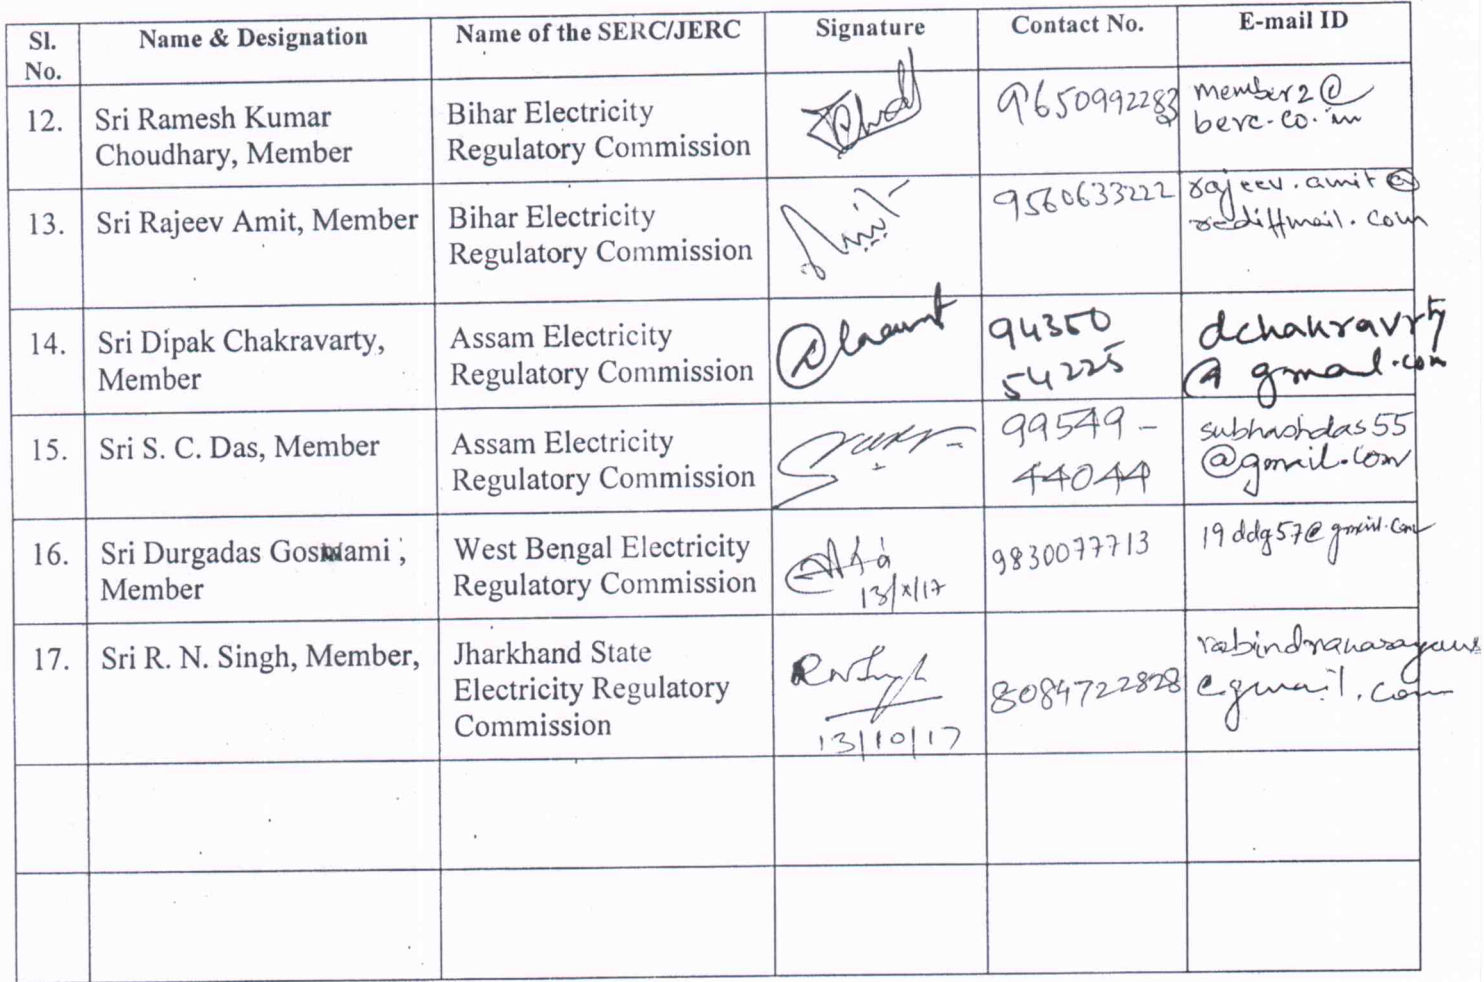 Sl. No. Name & Designation Name of the SERC/JERC Signature Contact No. E-mail ID
12. Sri Ramesh Kumar Choudhary, Member Bihar Electricity Regulatory Commission 9650992283 member2@berc.co.in
13. Sri Rajeev Amit, Member Bihar Electricity Regulatory Commission 9560633222 rajeev.amit@rediffmail.com
14. Sri Dipak Chakravarty, Member Assam Electricity Regulatory Commission 94350 54225 dchakravrty@gmail.com
15. Sri S. C. Das, Member Assam Electricity Regulatory Commission 99549-44044 subhashdas55@gmail.com
16. Sri Durgadas Goswami, Member West Bengal Electricity Regulatory Commission 13/x/17 9830077713 19ddg57@gmail.com
17. Sri R. N. Singh, Member, Jharkhand State Electricity Regulatory Commission RNSingh 13/10/17 8084722828 @gmail.com